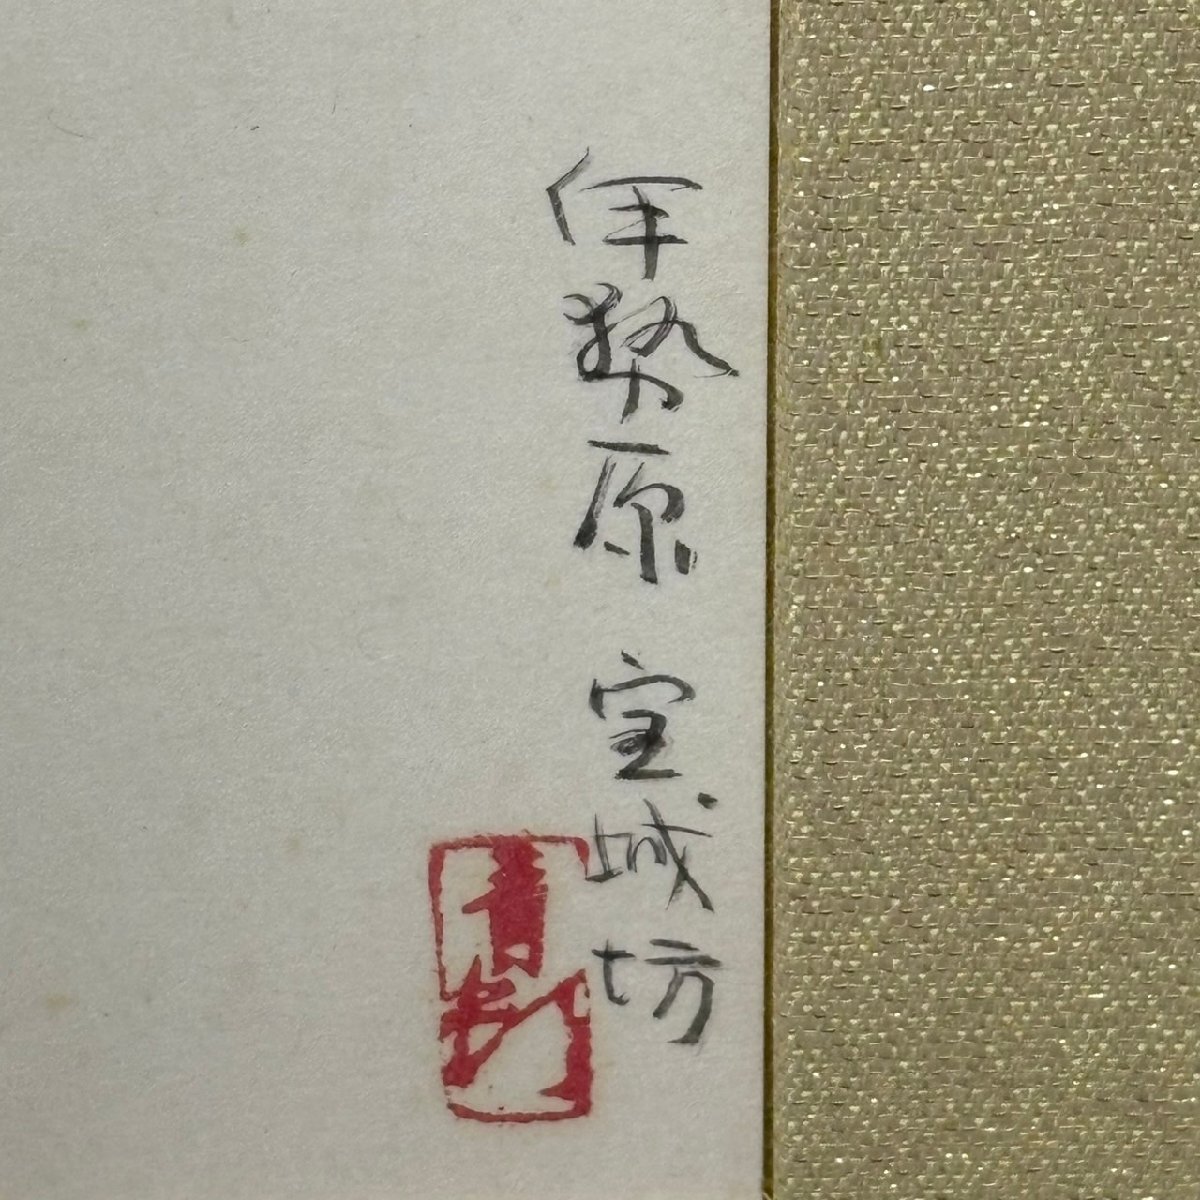 伊勢原 宝城坊